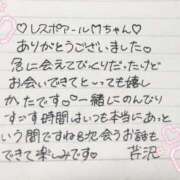 ♡レスポアールMちゃん♡
ありがとうございました。
急に会えてびっくりだったけど
お会いできてとっても嬉し
かたです。一緒にのんびり
すす時間はいつも本当にあっと
いう間ですね&次会うお話も
できて楽しみです。芹沢